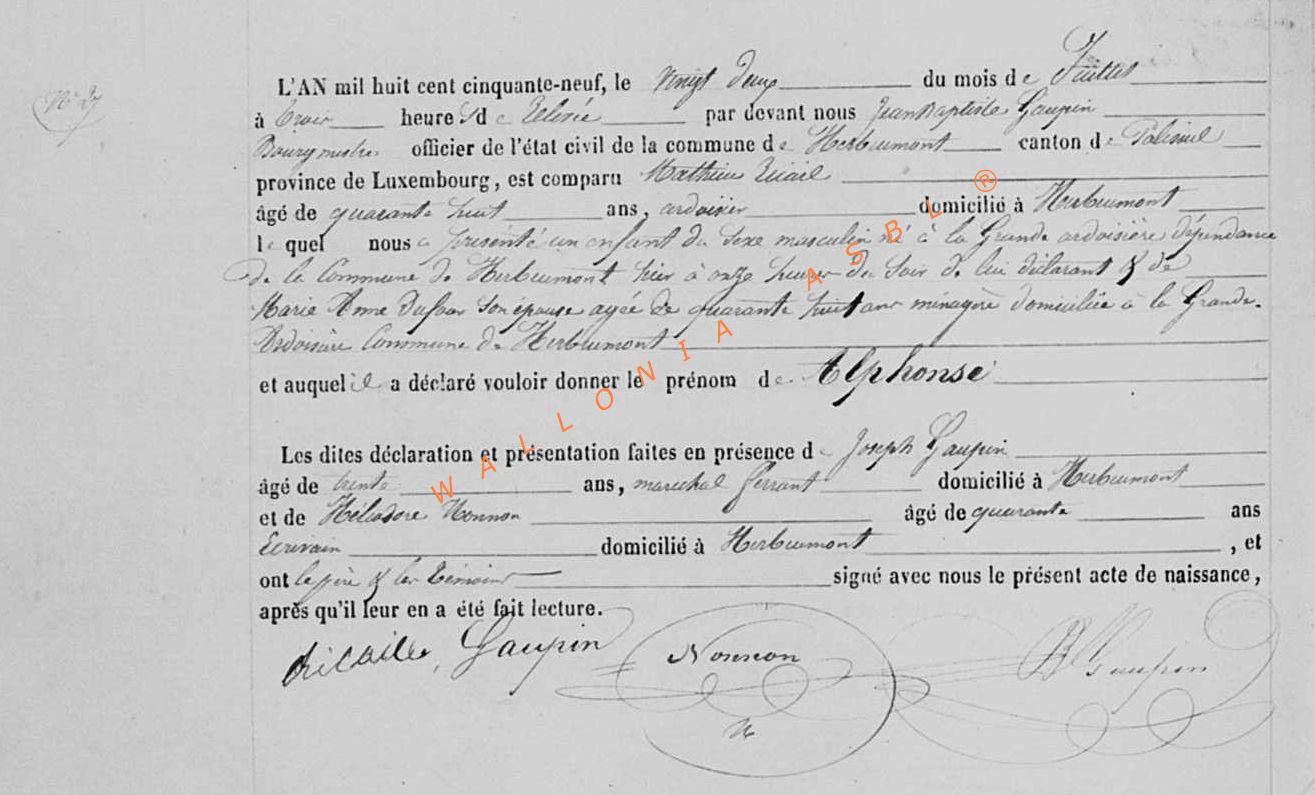 N° 27
L'AN mil huit cent cinquante-neuf, le vingt deux du mois de Juillet
à trois heures de relevée par devant nous Jean Baptiste Gaupin
Bourgmestre officier de l'état civil de la commune de Herbeumont canton de Paliseul
province de Luxembourg, est comparu Mathieu
âgé de quarante huit ans, ardoisier domicilié à Herbeumont
lequel nous a présenté un enfant du sexe masculin né à la Grande ardoisière dépendance
de la Commune de Herbeumont hier à onze heures du soir de lui déclarant & de
Marie Anne Dufour son épouse agée de quarante huit ans ménagère domiciliée à la Grande
Ardoisière Commune de Herbeumont
et auquel il a déclaré vouloir donner le prénom de Alphonse
Les dites déclaration et présentation faites en présence de Joseph Gaupin
âgé de trente ans, maréchal ferrant domicilié à Herbeumont
et de Héliodore Nonnon âgé de quarante ans
Ecrivain domicilié à Herbeumont, et
ont le père & les témoins signé avec nous le présent acte de naissance,
après qu'il leur en a été fait lecture.
Gaupin Nonnon Gaupin
WALLONIA ASBL ®